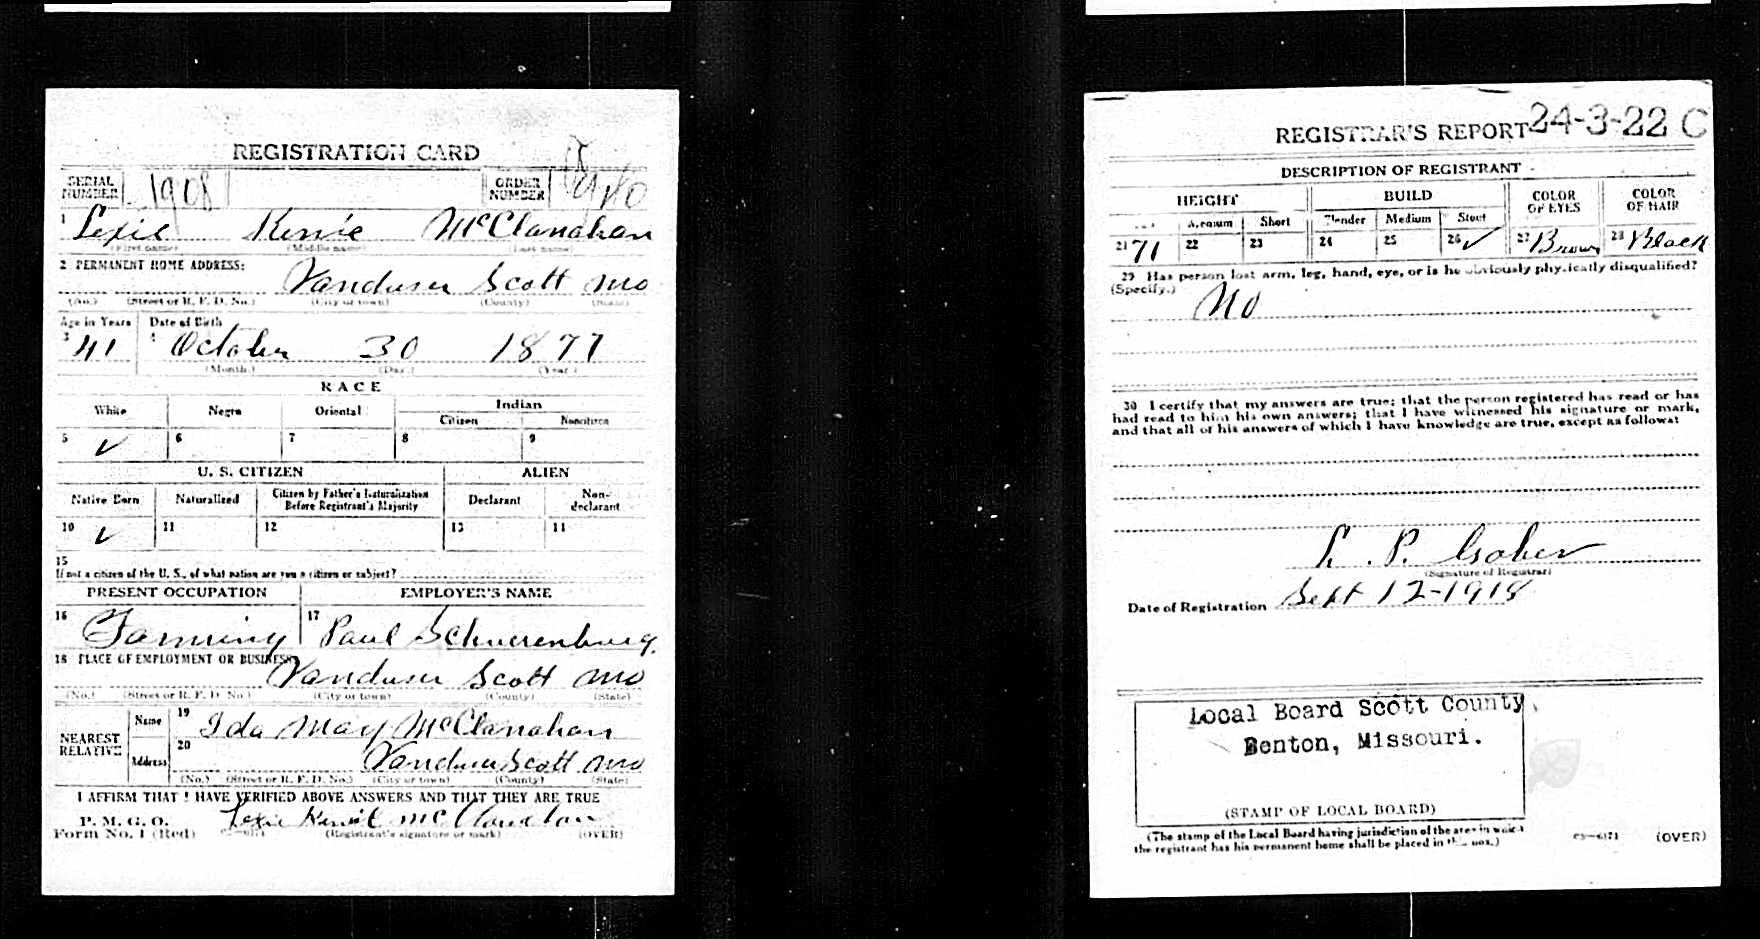 REGISTRATION CARD
SERIAL NUMBER 1908 ORDER NUMBER
1 Lexie Kinnie McClanahan
(First name) (Middle name) (Last name)
2 PERMANENT HOME ADDRESS:
Vanduser Scott Mo
(No.) (Street or R. F. D. No.) (City or town) (County) (State)
Age in Years Date of Birth
3 41 4 October 30 1877
(Month.) (Day.) (Year.)
RACE
White Negro Oriental Indian
Citizen Noncitizen
5 ✓ 6 7 8 9
U. S. CITIZEN ALIEN
Native Born Naturalized Citizen by Father's Naturalization Before Registrant's Majority Declarant Non-declarant
10 ✓ 11 12 13 14
15
If not a citizen of the U. S., of what nation are you a citizen or subject?
PRESENT OCCUPATION EMPLOYER'S NAME
16 Farming 17 Paul Schuerenburg.
18 PLACE OF EMPLOYMENT OR BUSINESS:
Vanduser Scott Mo
(No.) (Street or R. F. D. No.) (City or town) (County) (State)
NEAREST RELATIVE Name 19 Ida May McClanahan
Address 20 Vanduser Scott Mo
(No.) (Street or R. F. D. No.) (City or town) (County) (State)
I AFFIRM THAT I HAVE VERIFIED ABOVE ANSWERS AND THAT THEY ARE TRUE
P. M. G. O.
Form No. 1 (Red) Lexie McClanahan
(Registrant's signature or mark) (OVER)
REGISTRAR'S REPORT 24-3-22 C
DESCRIPTION OF REGISTRANT
HEIGHT BUILD COLOR OF EYES COLOR OF HAIR
Medium Short Slender Medium Stout
21 71 22 23 24 25 26 ✓ 27 Brown 28 Black
29 Has person lost arm, leg, hand, eye, or is he obviously physically disqualified?
(Specify.) No
30 I certify that my answers are true; that the person registered has read or has
had read to him his own answers; that I have witnessed his signature or mark,
and that all of his answers of which I have knowledge are true, except as follows:
(Signature of Registrar)
Date of Registration Sept 12-1918
Local Board Scott County,
Benton, Missouri.
(STAMP OF LOCAL BOARD)
(The stamp of the Local Board having jurisdiction of the area in which
the registrant has his permanent home shall be placed in this box.)
(OVER)